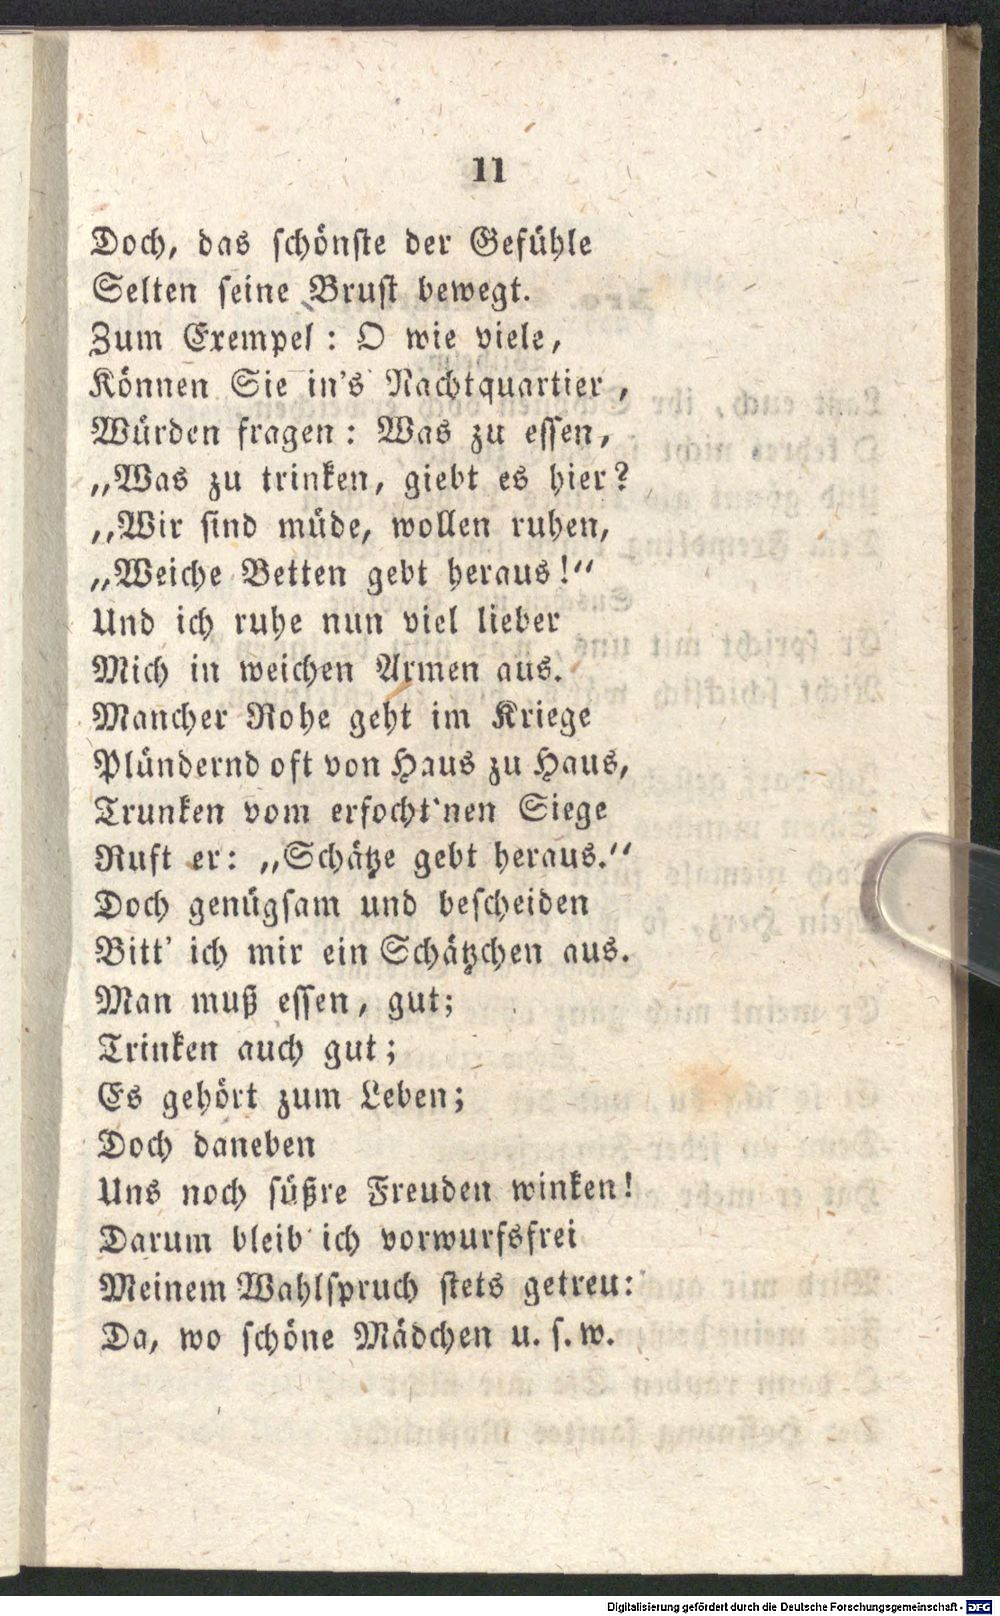 11
Doch, das schönste der Gefühle
Selten seine Brust bewegt.
Zum Exempel: O wie viele,
Können Sie in's Nachtquartier,
Würden fragen: Was zu essen,
„Was zu trinken, giebt es hier?
„Wir sind müde, wollen ruhen,
„Weiche Betten gebt heraus!“
Und ich ruhe nun viel lieber
Mich in weichen Armen aus.
Mancher Rohe geht im Kriege
Plündernd oft von Haus zu Haus,
Trunken vom erfocht'nen Siege
Ruft er: „Schätze gebt heraus.“
Doch genügsam und bescheiden
Bitt' ich mir ein Schätzchen aus.
Man muß essen, gut;
Trinken auch gut;
Es gehört zum Leben;
Doch daneben
Uns noch süßre Freuden winken!
Darum bleib' ich vorwurfsfrei
Meinem Wahlspruch stets getreu:
Da, wo schöne Mädchen u. s. w.
Digitalisierung gefördert durch die Deutsche Forschungsgemeinschaft - DFG